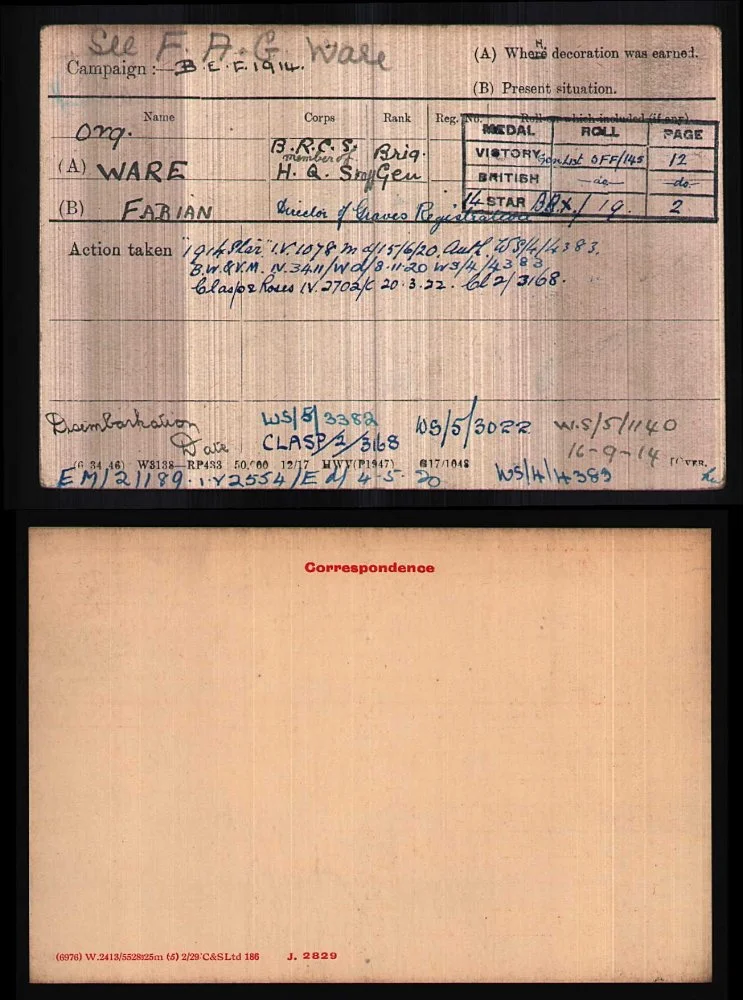 See F. A. G. Ware
Campaign :— B.E.F. 1914.
(A) Where decoration was earned.
(B) Present situation.
Name Corps Rank Reg. No. Roll on which included (if any).
MEDAL ROLL PAGE
Org. B.R.C.S. Brig.
member of
(A) WARE H. Q. Gen
VICTORY OFF/145 12
BRITISH —do— —do—
14 STAR 2
(B) FABIAN Director of Graves Registration
Action taken "1914 Star" I.V. 1078 M d/15/6/20. Auth. WS/4/4383.
B.W.&V.M. IV.3411/W d/8.11.20 WS/4/4383
Clasp & Roses IV.2702/C 20.3.22. Cl 2/3168.
Disembarkation WS/5/3382 WS/5/3022 W.S/5/1140
Date CLASP 2/3168 16-9-14
(6 34 46) W3138—RP433 50,000 12/17 HWV(P1947) G17/1048 [OVER.
EM/2/1189. I.V 2554/E d/ 4-5-20 WS/4/4383
Correspondence
(6976) W.2413/5528 25m (5) 2/29 C&SLtd 186 J. 2829